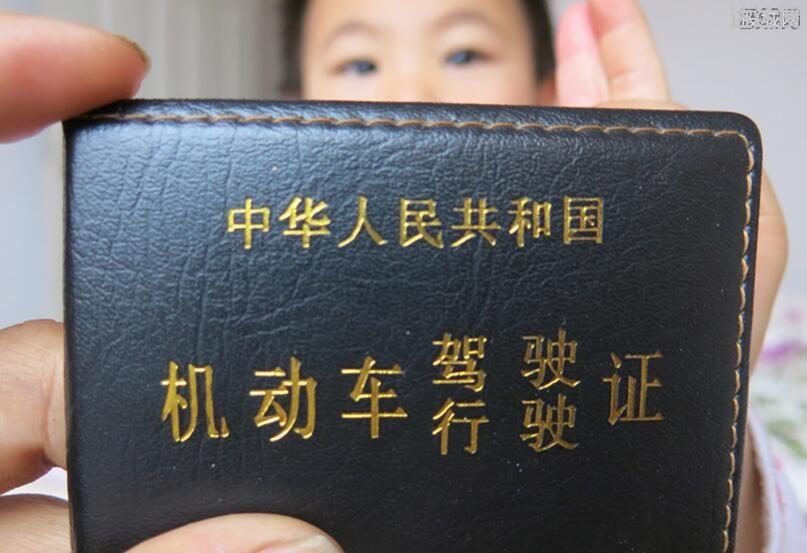 股城网
中华人民共和国
机动车驾驶证
行驶